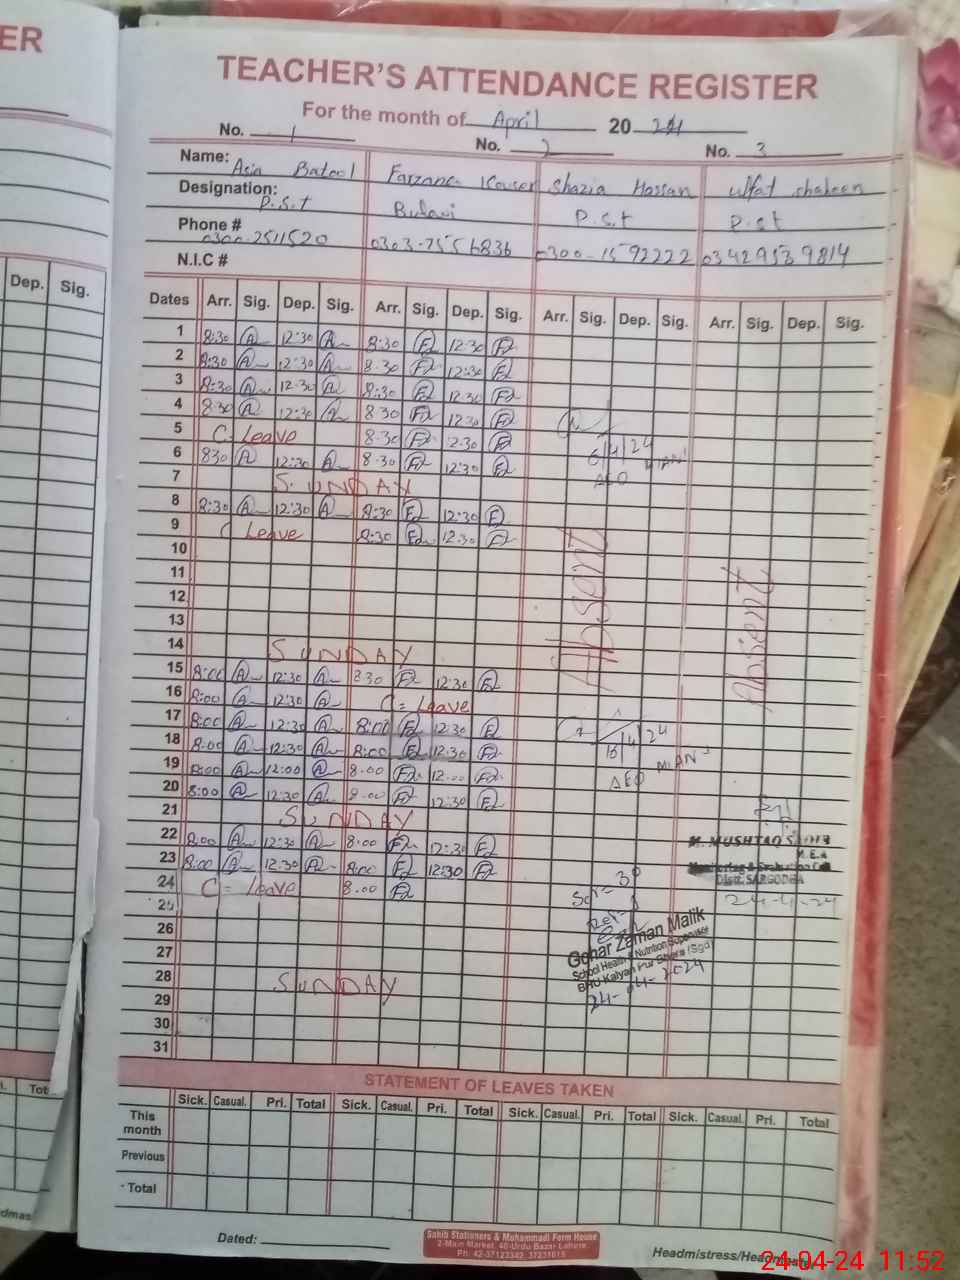 ER
TEACHER'S ATTENDANCE REGISTER
For the month of April 2024
No. 1 No. 2 No. 3
Name: Asia Batool Farzana Kouser Shazia Hassan Ulfat shaheen
Designation: P.S.T P.S.t P.St
Phone # 0300-2511520 0303-7556836 0300-1592222 03429539814
N.I.C #
Dep. Sig.
Dates Arr. Sig. Dep. Sig. Arr. Sig. Dep. Sig. Arr. Sig. Dep. Sig. Arr. Sig. Dep. Sig.
1 8:30 A 12:30 A 8:30 F 12:30 F
2 8:30 A 12:30 A 8:30 F 12:30 F
3 8:30 A 12:30 A 8:30 F 12:30 F
4 8:30 A 12:30 A 8:30 F 12:30 F
5 C Leave 8:30 F 12:30 F
6 8:30 A 12:30 A 8:30 F 12:30 F
6/4/24
AEO MIANI
7 SUNDAY
8 8:30 A 12:30 A 8:30 F 12:30 F
9 C Leave 8:30 F 12:30 F
10
11
12
13
Absent
Absent
14 SUNDAY
15 8:00 A 12:30 A 8:30 F 12:30 F
16 8:00 A 12:30 A C = Leave
17 8:00 A 12:30 A 8:00 F 12:30 F
18 8:00 A 12:30 A 8:00 F 12:30 F
16/4/24
AEO MIANI
19 8:00 A 12:00 A 8:00 F 12:00 F
20 8:00 A 12:30 A 8:00 F 12:30 F
21 SUNDAY
22 8:00 A 12:30 A 8:00 F 12:30 F
23 8:00 A 12:30 A 8:00 F 12:30 F
24 C = Leave 8:00 F
M. MUSHTAQ
M.E.A
Monitoring & Evaluation Cell
Distt. SARGODHA
24-4-24
25
26
27
Scr= 30
Ref=
Gohar Zaman Malik
School Health & Nutrition Supervisor
BHU Kalyan Pur Bhera (Sgd)
24-04-2024
28 SUNDAY
29
30
31
STATEMENT OF LEAVES TAKEN
Tot
Sick. Casual. Pri. Total Sick. Casual. Pri. Total Sick. Casual. Pri. Total Sick. Casual. Pri. Total
This month
Previous
Total
Dated:
Sahib Stationers & Muhammadi Form House
2-Main Market, 40-Urdu Bazar Lahore.
Ph: 42-37123342, 37231015
Headmistress/Headmaster
24-04-24 11:52